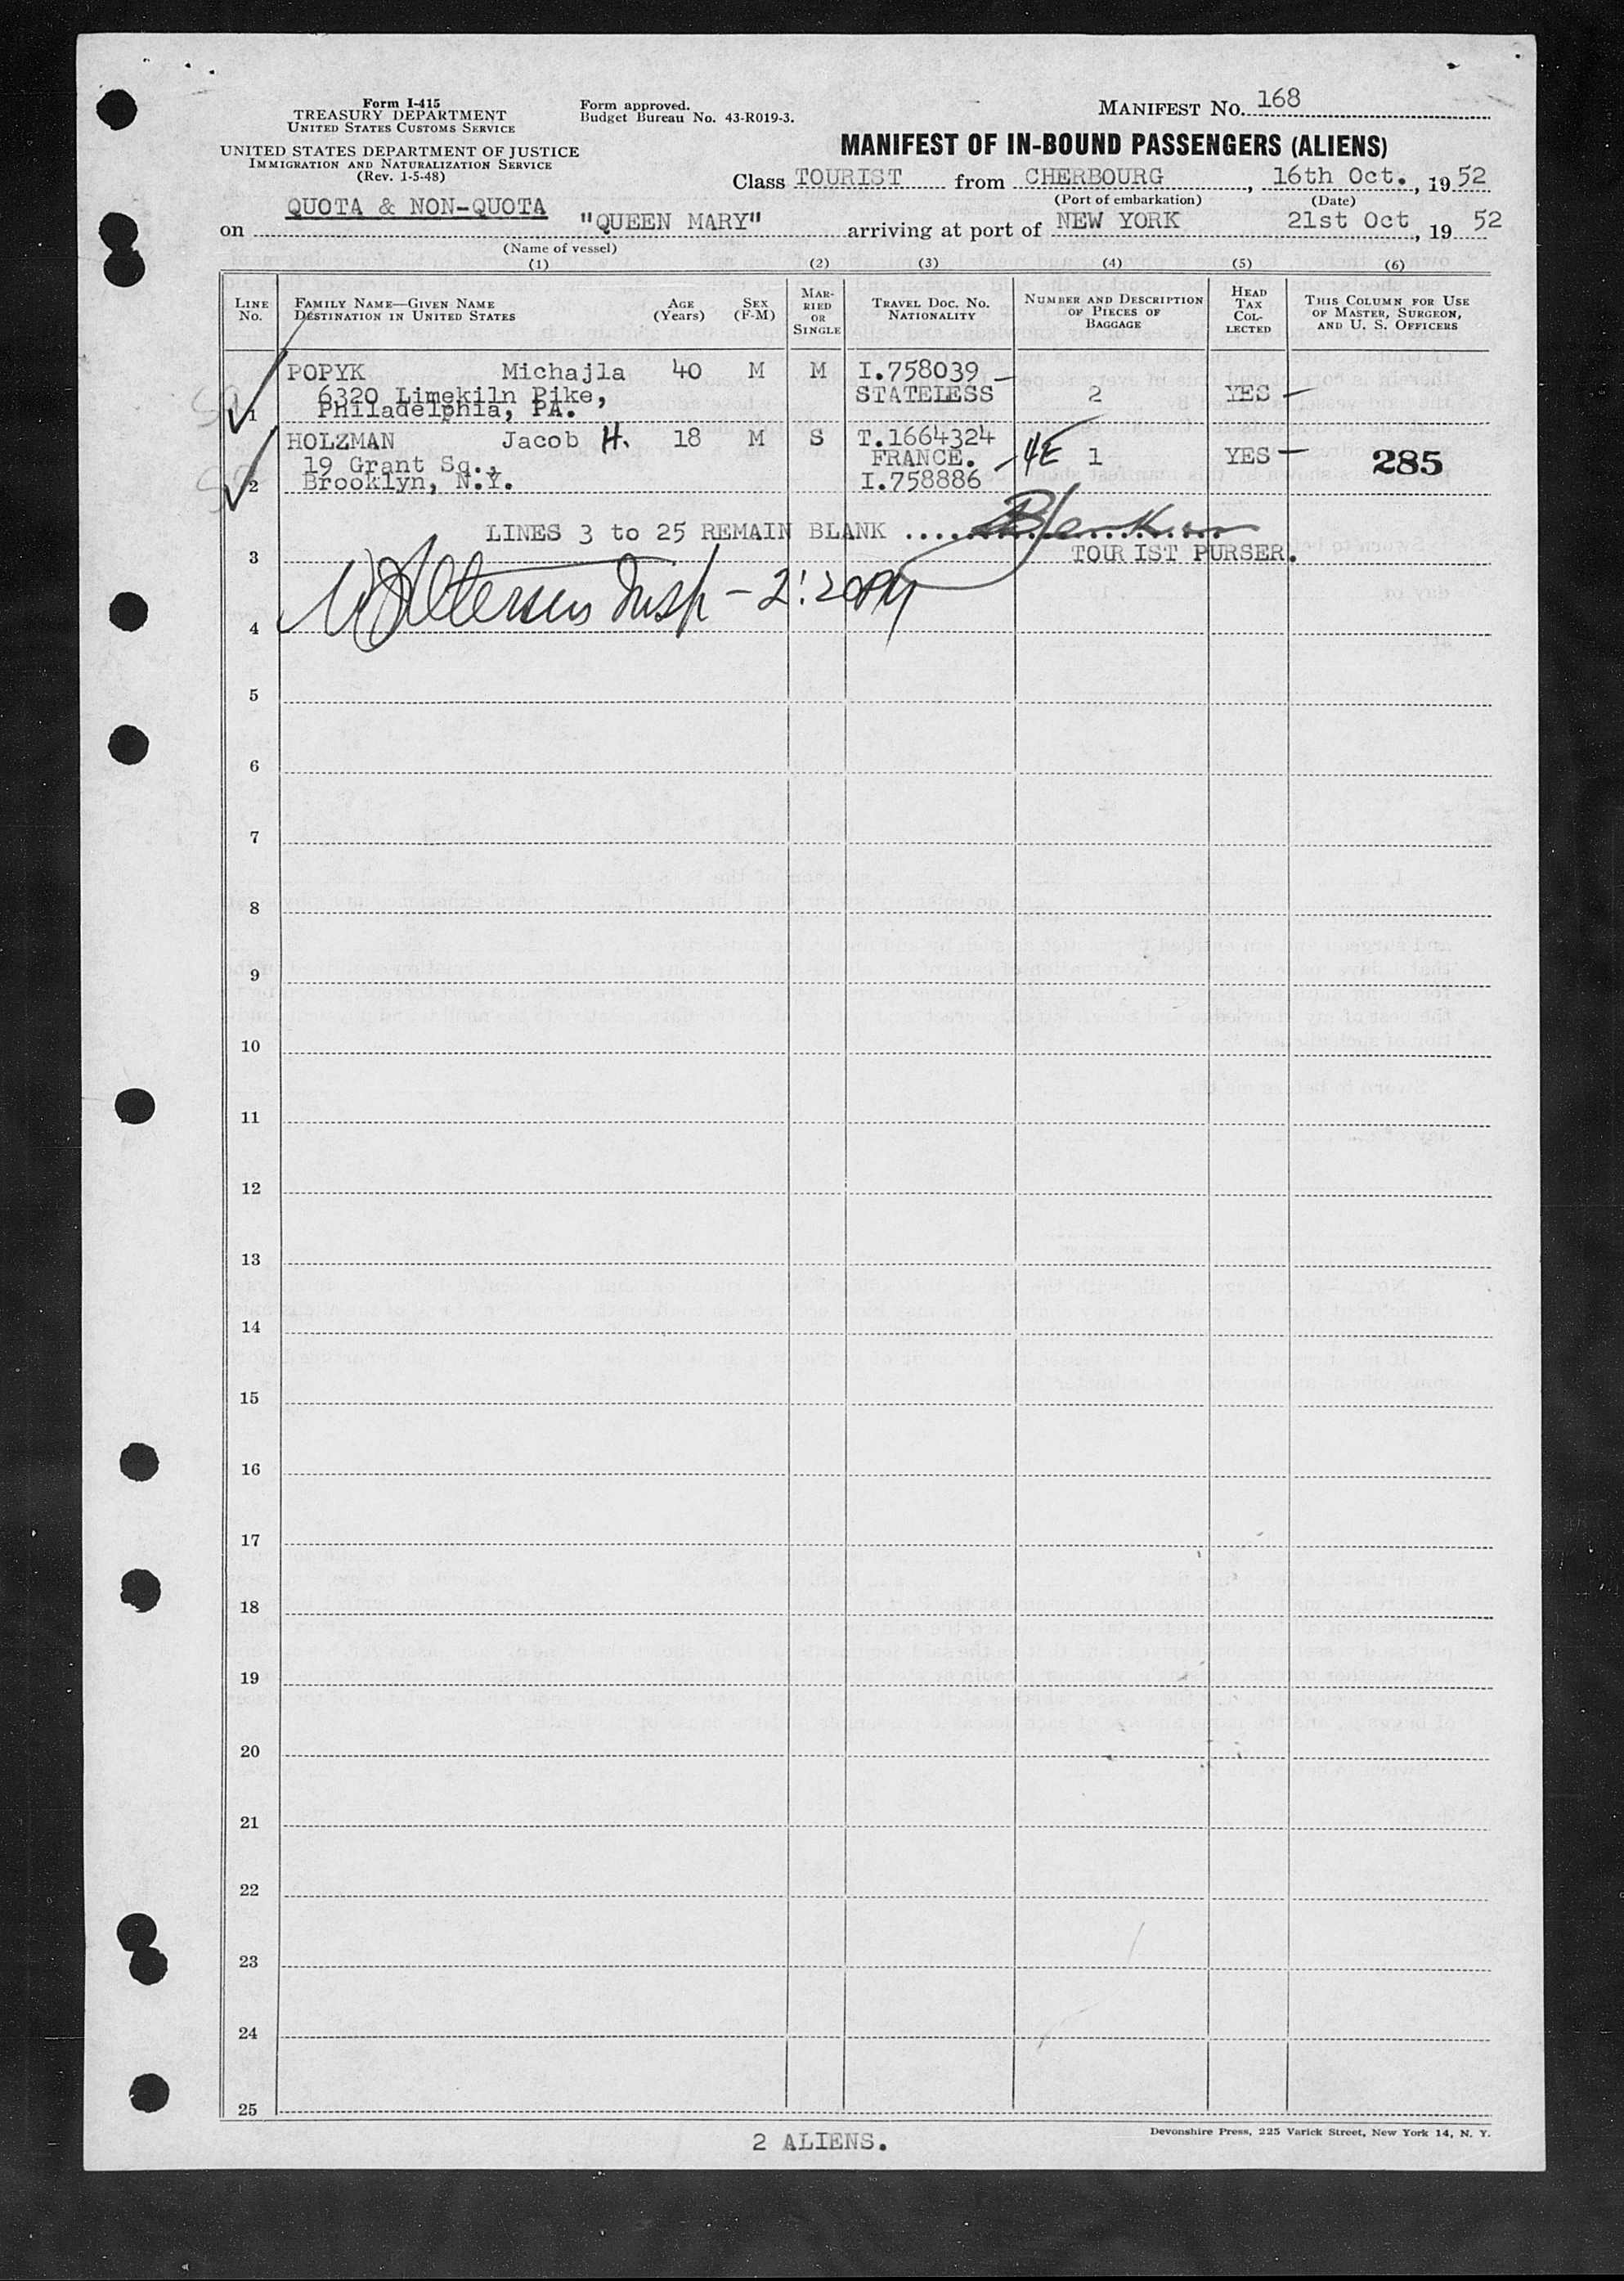 Form I-415
TREASURY DEPARTMENT
UNITED STATES CUSTOMS SERVICE
UNITED STATES DEPARTMENT OF JUSTICE
IMMIGRATION AND NATURALIZATION SERVICE
(Rev. 1-5-48)
Form approved.
Budget Bureau No. 43-R019-3.
MANIFEST No. 168
MANIFEST OF IN-BOUND PASSENGERS (ALIENS)
Class TOURIST from CHERBOURG, 16th Oct., 1952
(Port of embarkation) (Date)
QUOTA & NON-QUOTA
on "QUEEN MARY" arriving at port of NEW YORK 21st Oct, 19 52
(Name of vessel)
(1) (2) (3) (4) (5) (6)
LINE No. FAMILY NAME—GIVEN NAME DESTINATION IN UNITED STATES AGE (Years) SEX (F-M) MARRIED OR SINGLE TRAVEL DOC. NO. NATIONALITY NUMBER AND DESCRIPTION OF PIECES OF BAGGAGE HEAD TAX COLLECTED THIS COLUMN FOR USE OF MASTER, SURGEON, AND U. S. OFFICERS
POPYK Michajla 40 M M I.758039 –
6320 Limekiln Pike, STATELESS 2 YES –
1 Philadelphia, PA.
HOLZMAN Jacob H. 18 M S T.1664324
19 Grant Sq., FRANCE. – 4E 1 YES – 285
2 Brooklyn, N.Y. I.758886
LINES 3 to 25 REMAIN BLANK ......................
3 TOURIST PURSER.
Insp – 2:20 PM
4
5
6
7
8
9
10
11
12
13
14
15
16
17
18
19
20
21
22
23
24
25
2 ALIENS.
Devonshire Press, 225 Varick Street, New York 14, N. Y.